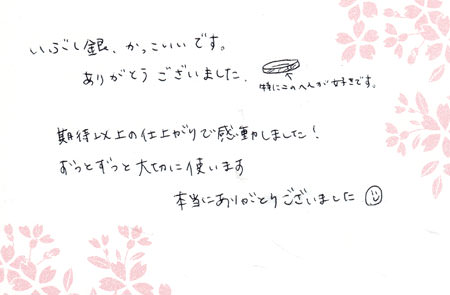 いぶし銀、かっこいいです。
ありがとうございました。
特にこのへんが好きです。
期待以上の仕上がりで感動しました！
ずっとずっと大切に使います
本当にありがとうございました